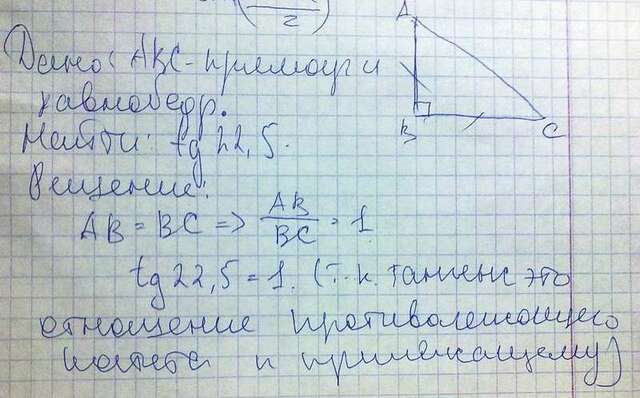 2
Дано: ABC - прямоуг и
равнобедр.
Найти: tg 22,5.
Решение:
AB = BC => AB/BC = 1
tg 22,5 = 1. (т.к. тангенс это
отношение противолежащего
катета к прилежащему)
A
B
C